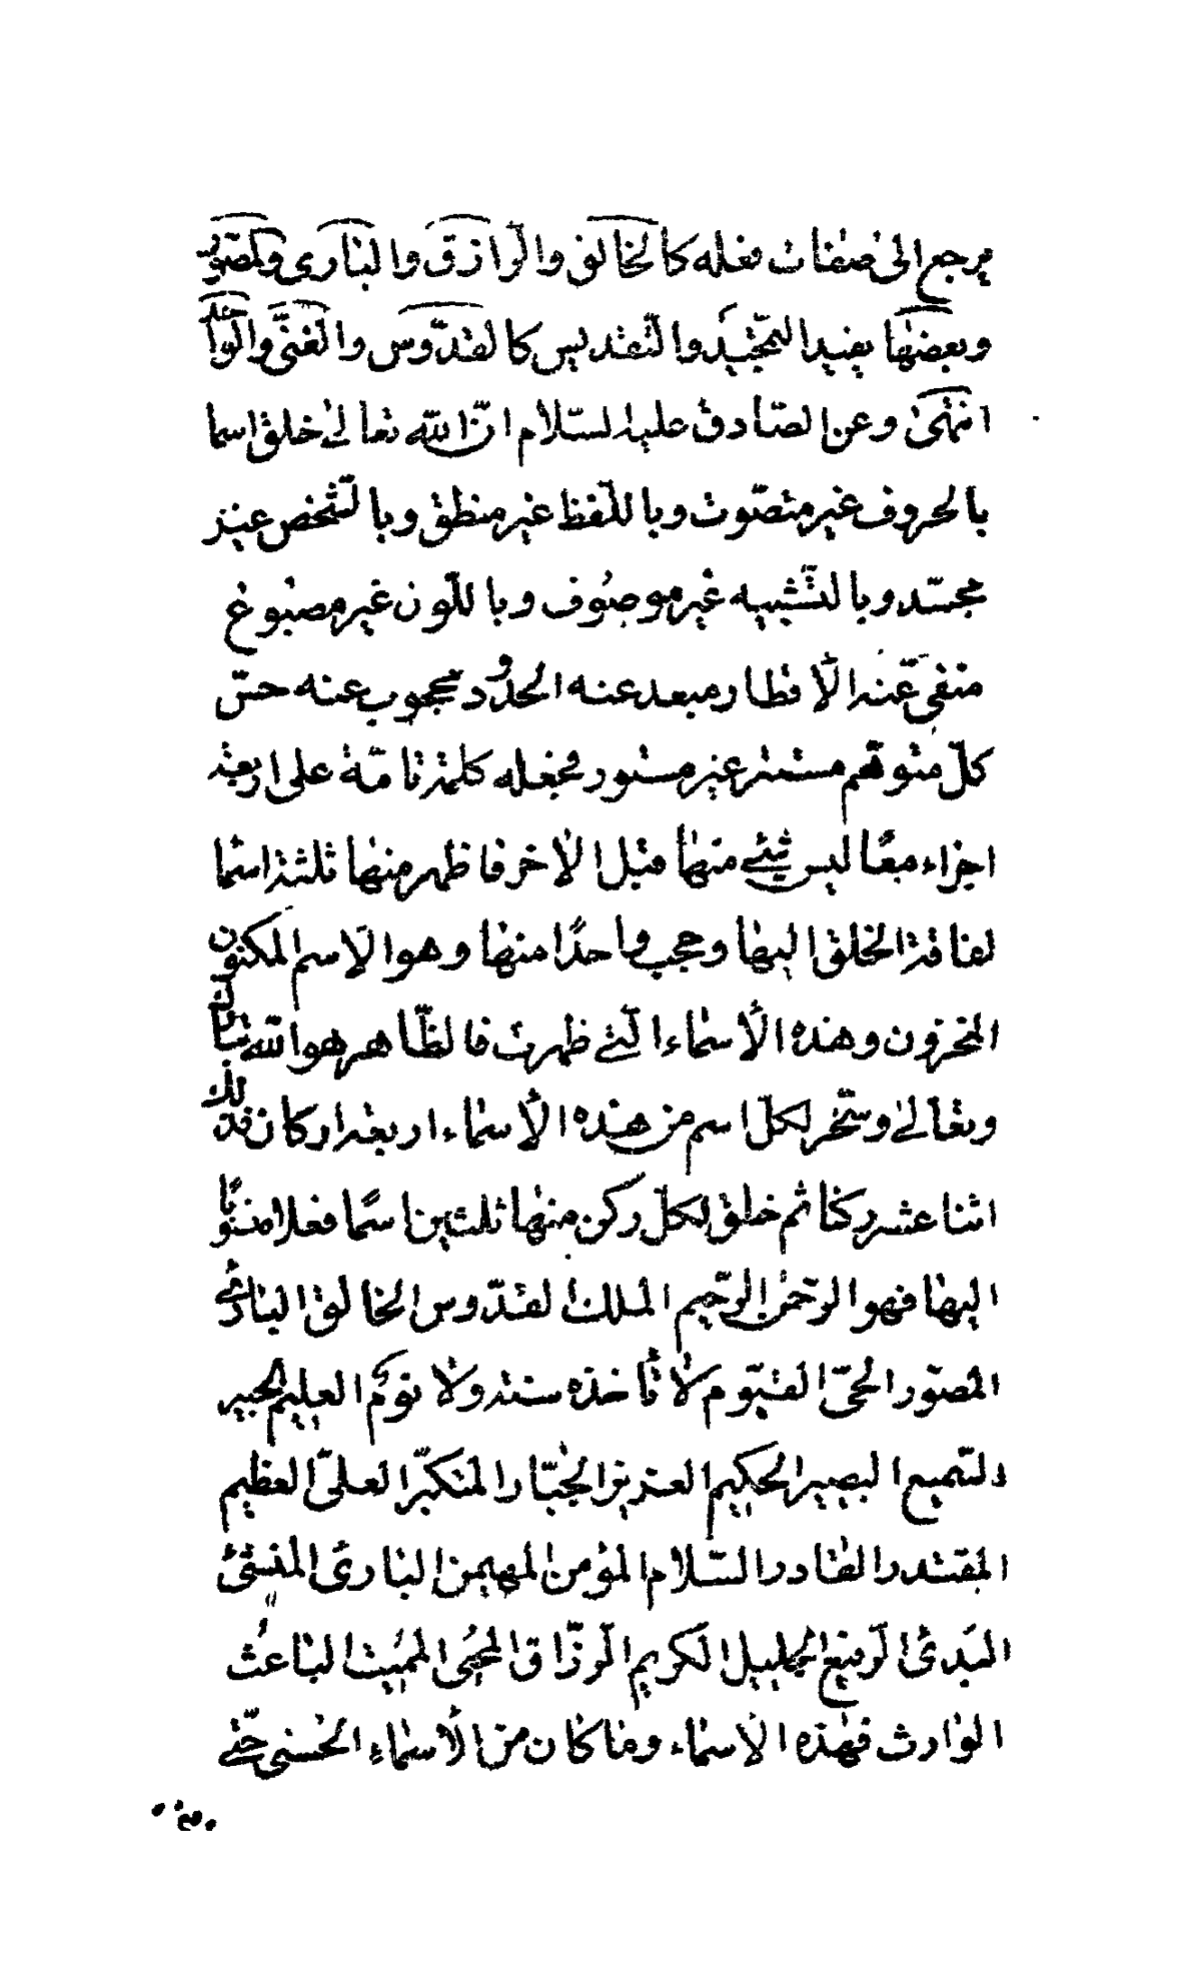 يرجع الى صفات فعله كالخالق والرازق والبارى والمصوّر
وبعضها يفيد التمجيد والتّقديس كالقدّوس والغنىّ والواحد
انتهىٰ وعن الصّادق عليه السّلام انّ اللّه تعالىٰ خلق اسما
بالحروف غير متصّوت وباللّفظ غير منطق وبالشّخص غير
مجسّد وبالتّشبيه غير موصُوف وباللّون غير مصبُوغ
منفى عنه الأقطار مبعد عنه الحدُود محجوب عنه حسّ
كلّ متوهّم مستتر غير مستور فجعله كلمة تامّة على اربعة
اجزاء معًا ليس شيئ منهٰا قبل الأخر فاظهر منهٰا ثلثة اسمٰا
لفاقة الخلق اليهٰا وحجب واحدًا منهٰا وهو الاسم المكنون
المخزون وهذه الأسمٰاء الّتى ظهرت فالظّاهر هو اللّه تبٰارك
وتعٰالىٰ وسخّر لكلّ اسم من هذه الأسمٰاء اربعة اركان فذلك
اثنا عشر ركنا ثم خلق لكلّ ركن منهٰا ثلثين اسمًا فعلا منسوبًا
اليهٰا فهو الرّحمٰن الرّحيم الملك القدّوس الخالق البٰارئ
المصّور الحىّ القيّوم لا تأخذه سنة ولا نوم العليم الخبير
السّميع البصير الحكيم العزيز الجبّار المتكبّر العلىّ العظيم
المقتدر القٰادر السّلام المؤمن المهيمن البٰارئ المنشئ
البَديُع الرّفيع الجليل الكريم الرّزّاق المحيُى المميُت البٰاعُث
الوٰارث فهٰذه الأسمٰاء ومٰا كٰان من الأسمٰاءِ الحُسنى حتّى